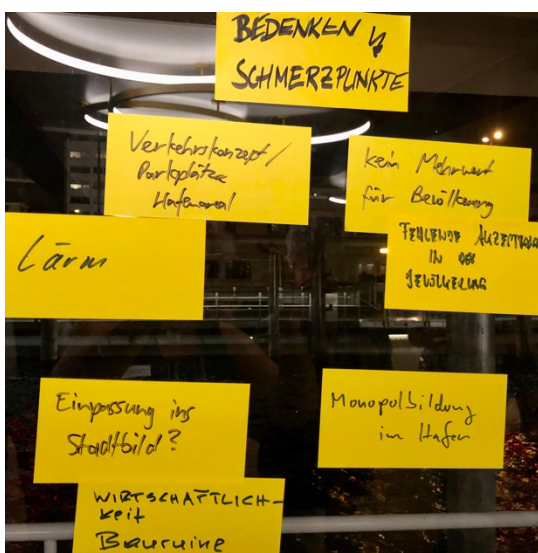 BEDENKEN &
SCHMERZPUNKTE
Verkehrskonzept/
Parkplätze
Hafenareal
kein Mehrwert
für Bevölkerung
FEHLENDE AKZEPTANZ
IN DER
BEVÖLKERUNG
Lärm
Einpassung ins
Stadtbild?
Monopolbildung
im Hafen
WIRTSCHAFTLICH-
keit
Bauruine